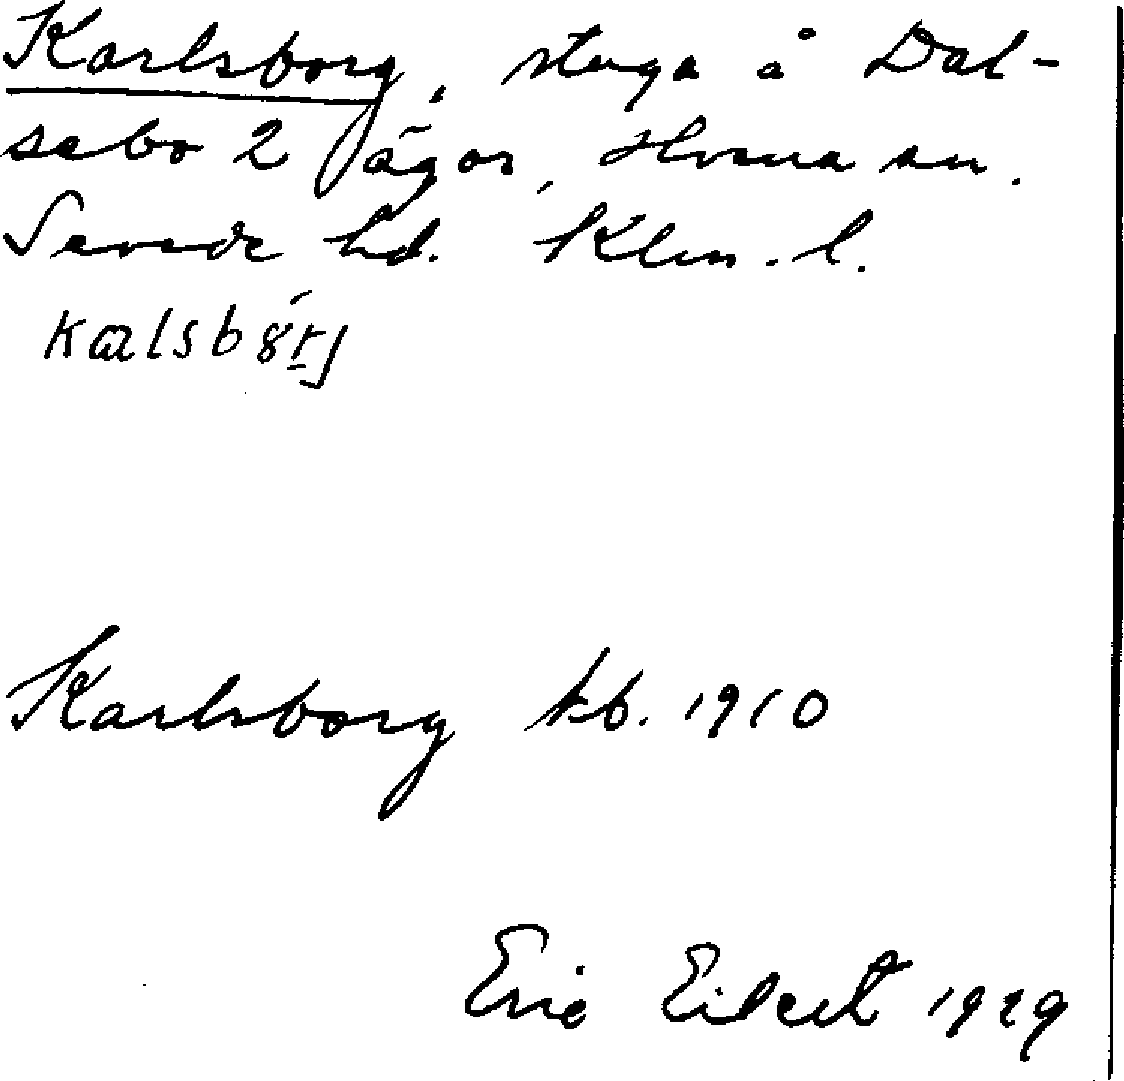 Karlsborg, stuga å Dal-
sebo 2 ägor, Hvena sn.
Sevede hd. Klm. l.
Karlsborg kb. 1910
Eric Eilert 1929